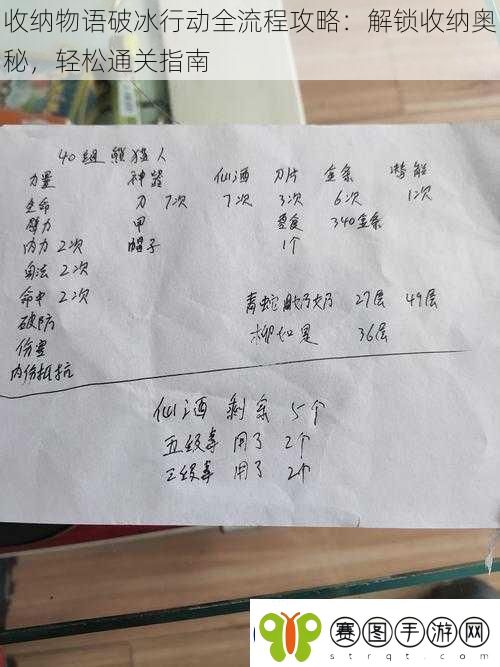 收纳物语破冰行动全流程攻略：解锁收纳奥
秘，轻松通关指南
40组熊猫人
力量 神器 仙酒 刀片 金条 潜能
生命 刀 7次 7次 3次 6次 1次
臂力 甲 要食 340金条
内力 2次 帽子 1个
身法 2次
命中 2次 青蛇 47层 49层
破防 柳如是 36层
伤害
内伤抵抗
仙酒 剩余 5个
五级拿 用了 2个
三级拿 用了 2个
赛图手游网
strqt.com